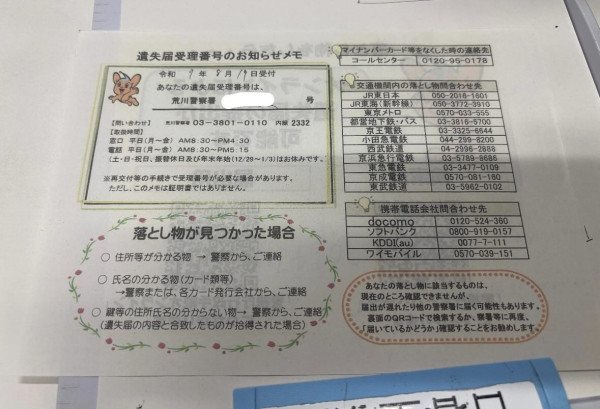 遺失届受理番号のお知らせメモ
令和 年 8月 日受付
あなたの遺失届受理番号は、
荒川警察署 号
【問い合わせ】 荒川警察署 03-3801-0110 内線 2332
【取扱時間】
窓口 平日(月~金) AM8:30~PM4:30
電話 平日(月~金) AM8:30~PM5:15
(土・日・祝日、振替休日及び年末年始(12/29~1/3)はお休みです。
※再交付等の手続きで受理番号が必要な場合があります。
ただし、このメモは証明書ではありません。
落とし物が見つかった場合
○ 住所等が分かる物 → 警察から、ご連絡
○ 氏名の分かる物(カード類等)
→警察または、各カード発行会社から、ご連絡
○ 鍵等の住所氏名の分からない物→ 警察から、ご連絡
(遺失届の内容と合致したものが拾得された場合)
マイナンバーカード等をなくした時の連絡先
コールセンター 0120-95-0178
交通機関内の落とし物問合わせ先
JR東日本 050-2016-1601
JR東海(新幹線) 050-3772-3910
東京メトロ 0570-033-555
都営地下鉄・バス 03-3816-5700
京王電鉄 03-3325-6644
小田急電鉄 044-299-8200
西武鉄道 04-2996-2888
京浜急行電鉄 03-5789-8686
東急電鉄 03-3477-0109
京成電鉄 0570-081-160
東武鉄道 03-5962-0102
携帯電話会社問合わせ先
docomo 0120-524-360
ソフトバンク 0800-919-0157
KDDI(au) 0077-7-111
ワイモバイル 0570-039-151
あなたの落とし物に該当するものは、
現在のところ確認できませんが、
届出が遅れたり他の警察署に届く可能性もあります。
裏面のQRコードで検索するか、警察署等に再度、
「届いているかどうか」確認することをお勧めします。